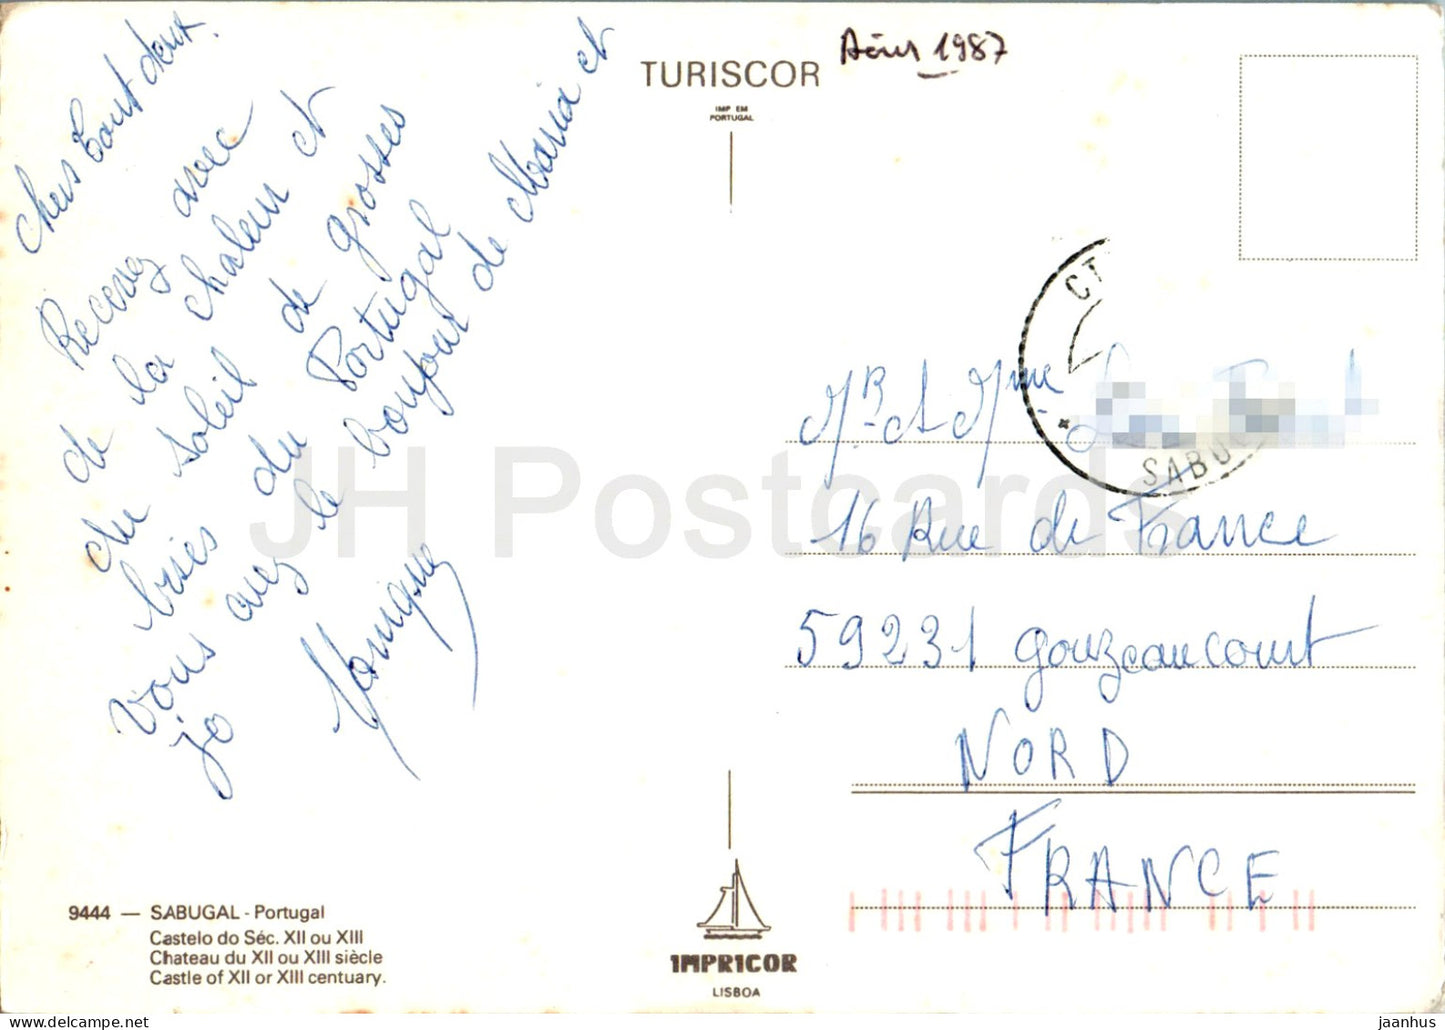 Chers tout deux.
Recevez avec
de la chaleur et
du soleil de grosses
bises du Portugal
vous avez le bonjour de Maria et
jo
Monique
TURISCOR
IMP EM
PORTUGAL
Août 1987
CT
SABU
Mr. A Mme
16 Rue de France
59231 gouzeaucourt
NORD
FRANCE
9444 — SABUGAL - Portugal
Castelo do Séc. XII ou XIII
Chateau du XII ou XIII siècle
Castle of XII or XIII centuary.
IMPRICOR
LISBOA
JH Postcards
www.delcampe.net
jaanhus